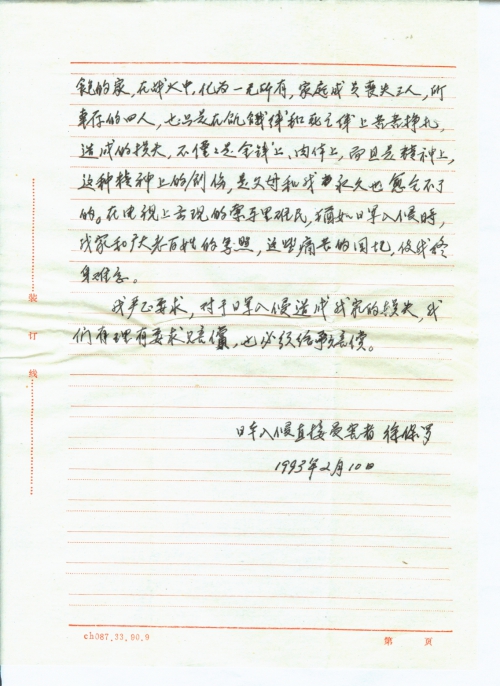 的家，在战火中，化为一无所有，家庭成员丧失三人，所
幸存的四人，也只是在饥饿线和死亡线上苦苦挣扎，
造成的损失，不仅仅是金钱上、肉体上，而且是精神上，
这种精神上的创伤，是父母和我永久也愈合不了
的。在电视上出现的索马里难民，犹如日军入侵时，
我家和广大老百姓的写照，这些痛苦的回忆，使我终
身难忘。
我严正要求，对于日军入侵造成我家的损失，我
们有理有要求赔偿，也必须给予赔偿。
日军入侵直接受害者 徐保罗
1993年2月10日
装订线
ch087.33.90.9
第 页